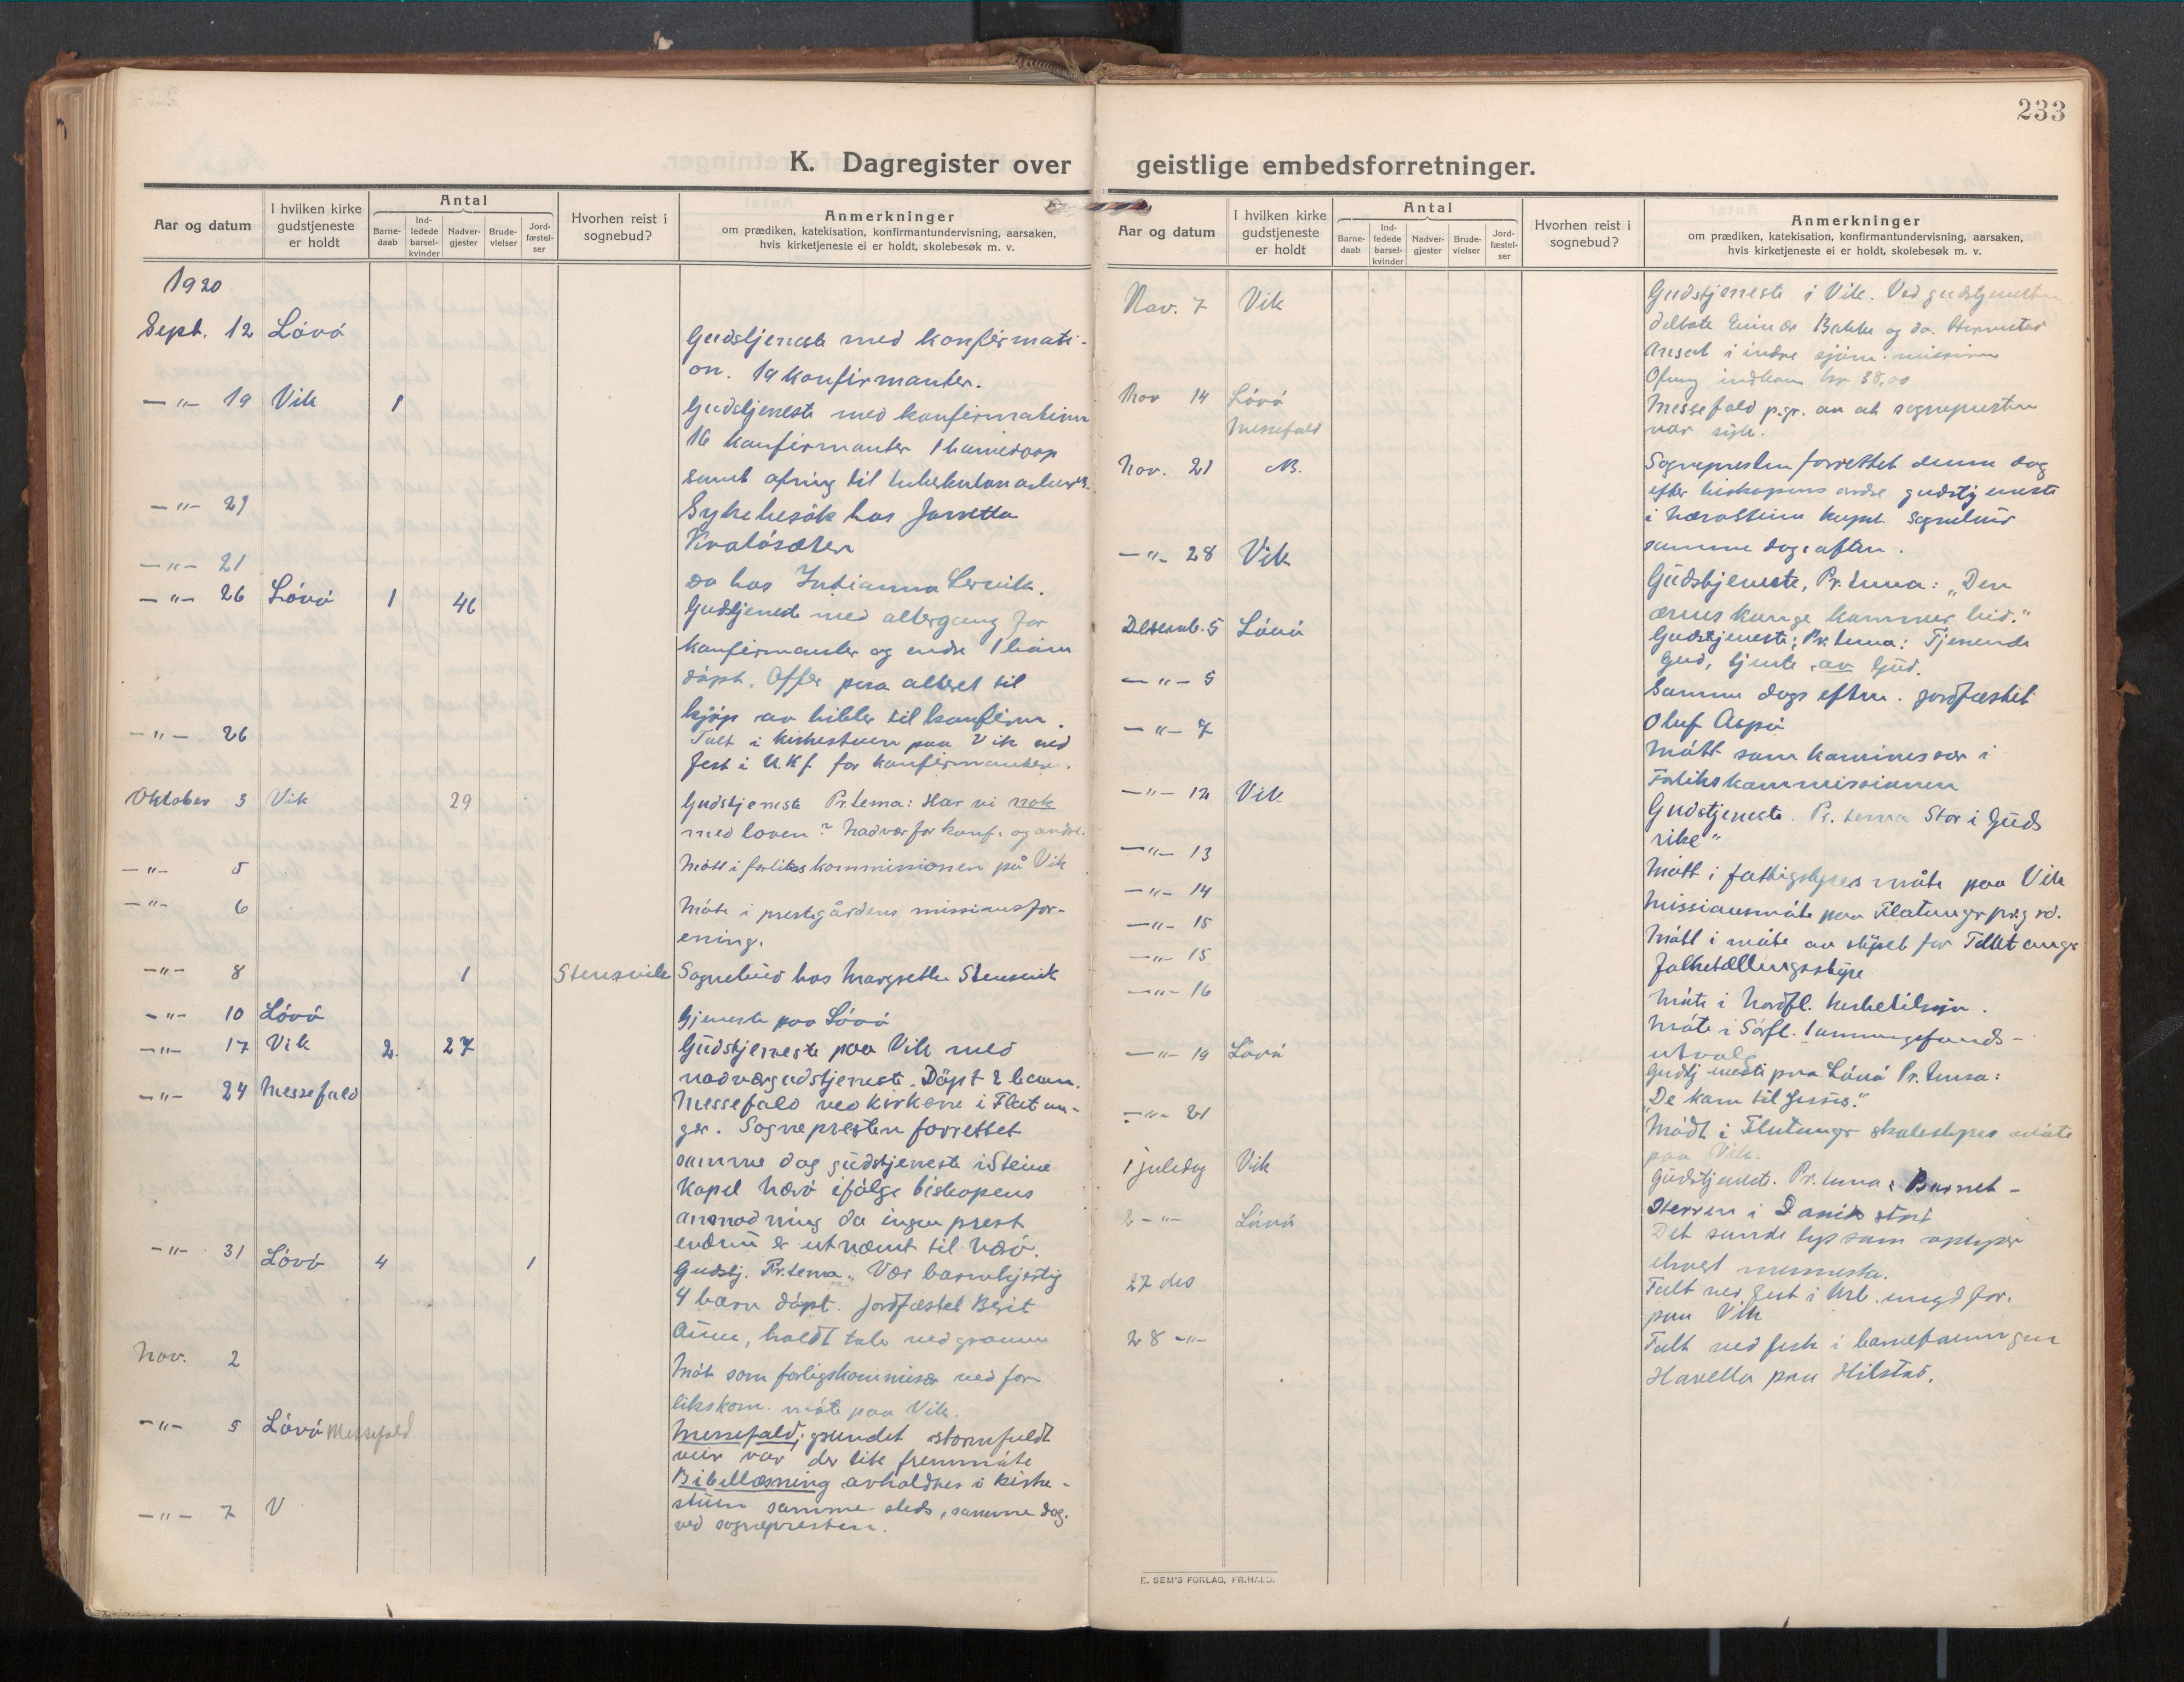 233
K. Dagregister over geistlige embedsforretninger.
Aar og datum
I hvilken kirke gudstjeneste er holdt
Antal
Barne-daab
Ind-ledede barsel-kvinder
Nadver-gjester
Brude-vielser
Jord-fæstel-ser
Hvorhen reist i sognebud?
Anmerkninger
om prædiken, katekisation, konfirmantundervisning, aarsaken,
hvis kirketjeneste ei er holdt, skolebesøk m. v.
1920
Sept. 12 Lövö Gudstjeneste med konfirmati-
on. 19 konfirmanter.
—"— 19 Vik 1 Gudstjeneste med konfirmation
16 konfirmanter 1 barnedaap
samt ofring til
—"— 21 Sykebesök hos
Kvalösæter
—"— 21 do hos Julianna Lervik.
—"— 26 Lövö 1 46 Gudstjeneste med altergang for
konfirmanter og andre 1 barn
döpt. Offer paa alteret til
kjöp av bibler til konfirm.
—"— 26 Talt i kirkestuen paa Vik ved
fest i U.K.f. for konfirmanter.
Oktober 3 Vik 29 Gudstjeneste Pr. tema: Har vi nok
med loven? Nadver for konf. og andre.
—"— 5 Mött i forlikskommissionen på Vik
—"— 6 Möte i prestegårdens missionsfor-
ening.
—"— 8 1 Stensvik Sognebud hos Stensvik
—"— 10 Lövö Gjeneste paa Lövö
—"— 17 Vik 2. 27 Gudstjeneste paa Vik med
nadvergudstjeneste. Döpt 2 barn.
—"— 24 Messefald Messefald ved kirkene i Flatan-
ger. Sognepresten forrettet
samme dag gudstjeneste i Steine
Kapel Nærö ifölge biskopens
anmodning da ingen prest
endnu er utnævnt til Nærö.
—"— 31 Lövö 4 1 Gudstj. Pr. tema „Vær barmhjertig
4 barn döpt. Jordfæstet Berit
holdt tale ved graven
Nov. 2 Möt som forligskommisær ved for
likskom. möte paa Vik.
—"— 5 Lövö Messefald Messefald; grundet stormfuldt
veir var der lite fremmöte
Bibellæsning avholdtes i kirke-
stuen samme steds, samme dag.
ved sognepresten.
—"— 7 V
Aar og datum
I hvilken kirke gudstjeneste er holdt
Antal
Barne-daab
Ind-ledede barsel-kvinder
Nadver-gjester
Brude-vielser
Jord-fæstel-ser
Hvorhen reist i sognebud?
Anmerkninger
om prædiken, katekisation, konfirmantundervisning, aarsaken,
hvis kirketjeneste ei er holdt, skolebesøk m. v.
Nov. 7 Vik Gudstjeneste i Vik. Ved gudstjenesten
deltok Einar Bakke og do.
Ansat i indre sjöm. mission
Ofring indkom kr 38,00
Nov 14 Lövö Messefald Messefald p.gr. av at sognepresten
var syk.
Nov. 21 NB. Sognepresten forrettet denne dag
efter biskopens ordre gudstjeneste
i Nærö Steine kapel. Sognebud
samme dags aften.
—"— 28 Vik Gudstjeneste, Pr. tema: „Den
æres konge kommer hid."
Desemb. 5 Lövö Gudstjeneste; Pr. tema: Tjenende
Gud, tjente av Gud.
—"— 5 Samme dags efterm. jordfæstet
Oluf Aspö
—"— 7 Mött som kommissær i
Forlikskommissionen
—"— 12 Vik Gudstjeneste. Pr. tema Stor i Guds
rike"
—"— 13 Mött i fattigstyres möte paa Vik
—"— 14 Missionsmöte paa Flatanger prg rd.
—"— 15 Mött i möte av styret for Flatanger
folketællingsstyre
—"— 15 Möte i Nordfl. kirketilsyn.
—"— 16 Möte i Sörfl.
utvalg
—"— 19 Lövö Gudstjeneste paa Lövö Pr. tema:
„De kom til Jesus."
—"— 21 Mödt i Flatanger skolestyres möte
paa Vik.
1 juledag Vik Gudstjeneste. Pr. tema: Barnet -
Herren i Davids stat
2 —"— Lövö Det sande lys som oplyser
ethvert menneske.
27 des Talt ved fest i Ung. for.
paa Vik
28 —"— Talt ved fest i barneforeningen
paa Hilstad.
E. SEM'S FORLAG, FR.HALD.